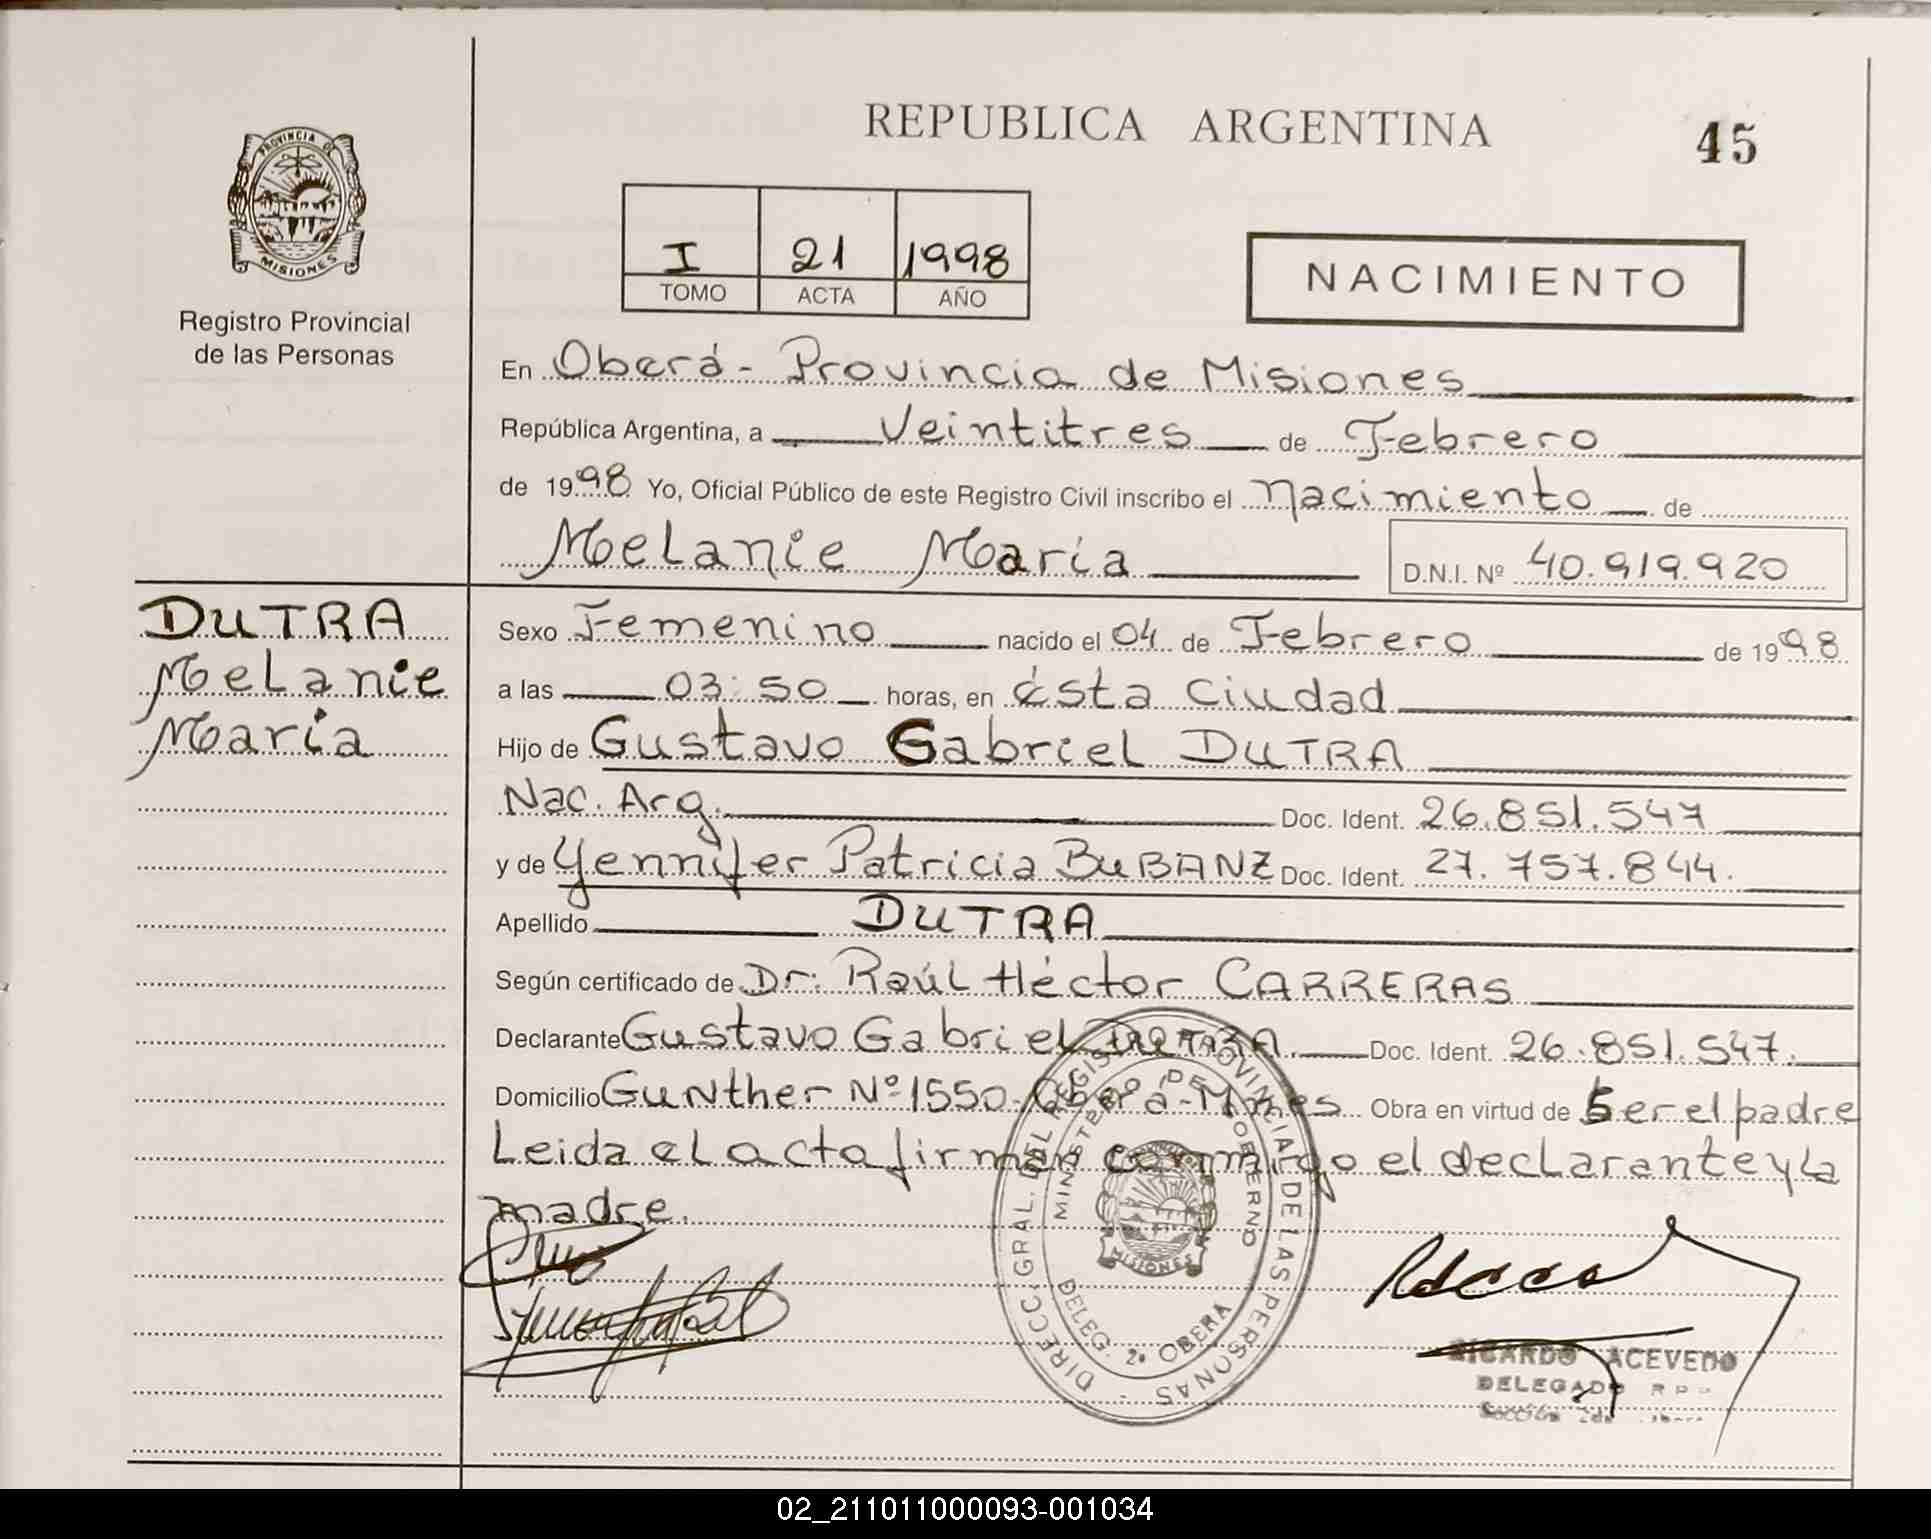 REPUBLICA ARGENTINA
45
PROVINCIA DE
MISIONES
Registro Provincial
de las Personas
I 21 1998
TOMO ACTA AÑO
NACIMIENTO
En Oberá - Provincia de Misiones
República Argentina, a Veintitres de Febrero
de 1998 Yo, Oficial Público de este Registro Civil inscribo el Nacimiento de
Melanie Maria D.N.I. Nº 40.919.920
DUTRA
Melanie
Maria
Sexo Femenino nacido el 04 de Febrero de 1998
a las 03:50 horas, en ésta Ciudad
Hijo de Gustavo Gabriel DUTRA
Nac. Arg. Doc. Ident. 26.851.547
y de Yennifer Patricia BUBANZ Doc. Ident. 27.757.844.
Apellido DUTRA
Según certificado de Dr: Raúl Héctor CARRERAS
Declarante Gustavo Gabriel DUTRA Doc. Ident. 26.851.547.
Domicilio Gunther Nº 1550-Oberá-Mnes Obra en virtud de Ser el padre
Leida el acta firman conmigo el declarante y la
madre.
DIRECC. GRAL. DEL REGISTRO PROVINCIAL DE LAS PERSONAS
MINISTERIO DE GOBIERNO
MISIONES
DELEG. 2º OBERA
RICARDO ACEVEDO
DELEGADO
02_211011000093-001034